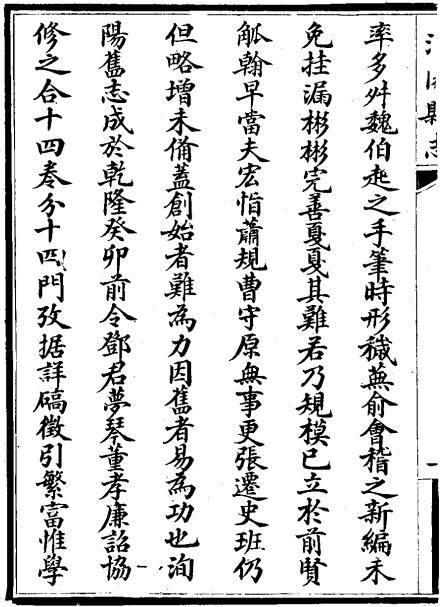 率多舛魏伯起之手筆時形穢蕪俞會稽之新編未
免挂漏彬彬完善戛戛其難若乃規模已立於前賢
觚翰早當夫宏恉蕭規曹守原無事更張遷史班仍
但略增未備蓋創始者難為力因舊者易為功也洵
陽舊志成於乾隆癸卯前令鄧君夢琴董孝廉詔協
修之合十四卷分十四門攷据詳碻徵引繁富惟學
縣志